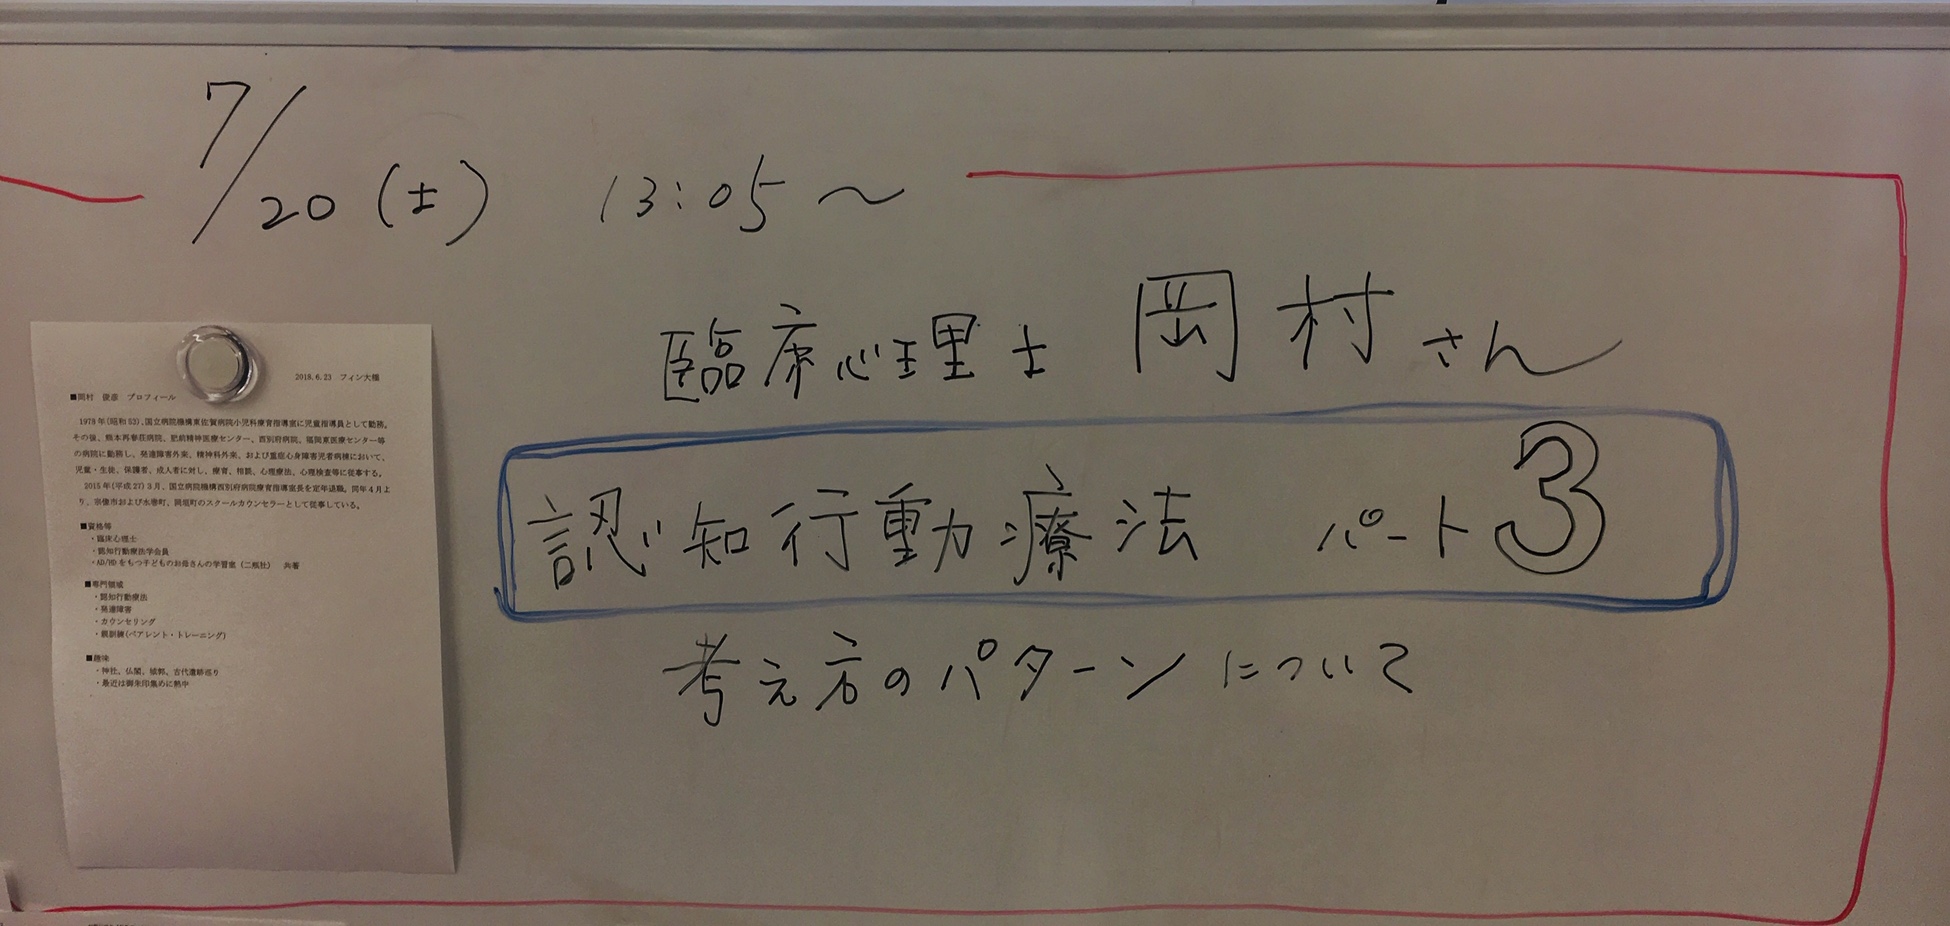 7/20(土) 13:05〜
臨床心理士 岡村さん
認知行動療法 パート3
考え方のパターンについて
2018.6.23 フィン大橋
■岡村 俊彦 プロフィール
1978年(昭和53)、国立病院機構東佐賀病院小児科療育指導室に児童指導員として勤務。
その後、熊本再春荘病院、肥前精神医療センター、西別府病院、福岡東医療センター等
の病院に勤務し、発達障害外来、精神科外来、および重症心身障害児者病棟において、
児童・生徒、保護者、成人者に対し、療育、相談、心理療法、心理検査等に従事する。
2015年(平成27)3月、国立病院機構西別府病院療育指導室長を定年退職。同年4月よ
り、宗像市および水巻町、岡垣町のスクールカウンセラーとして従事している。
■資格等
・臨床心理士
・認知行動療法学会員
・AD/HDをもつ子どものお母さんの学習室(二瓶社) 共著
■専門領域
・認知行動療法
・発達障害
・カウンセリング
・親訓練(ペアレント・トレーニング)
■趣味
・神社、仏閣、城郭、古代遺跡巡り
・最近は御朱印集めに熱中